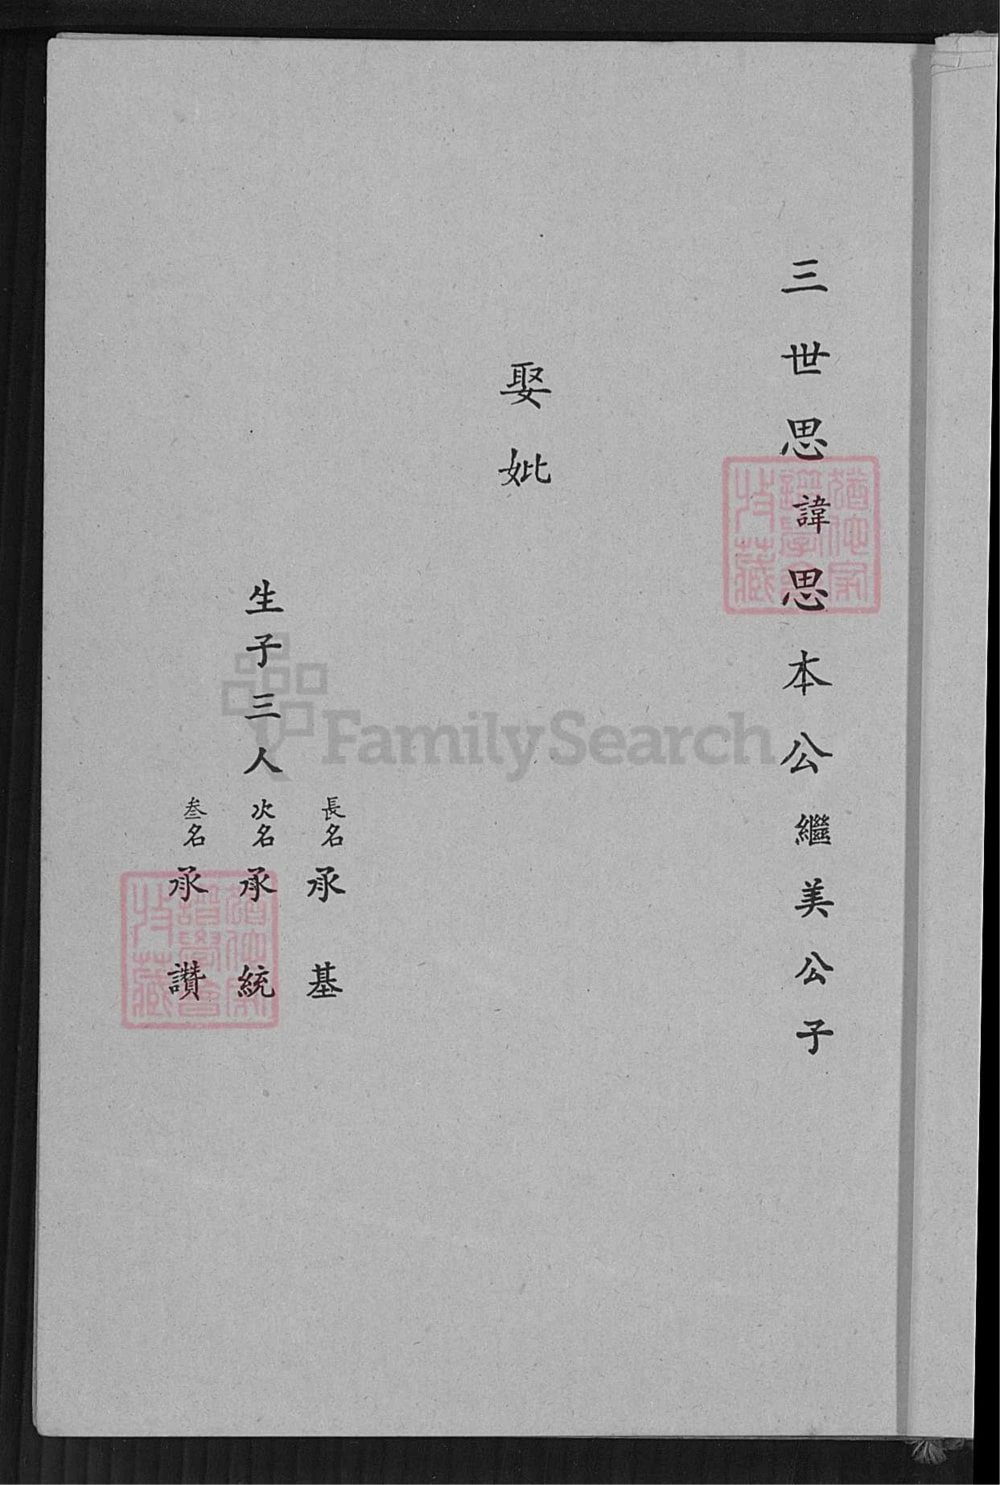 三世思諱思本公繼美公子
娶妣
生子三人
長名承基
次名承統
叁名承讚
FamilySearch